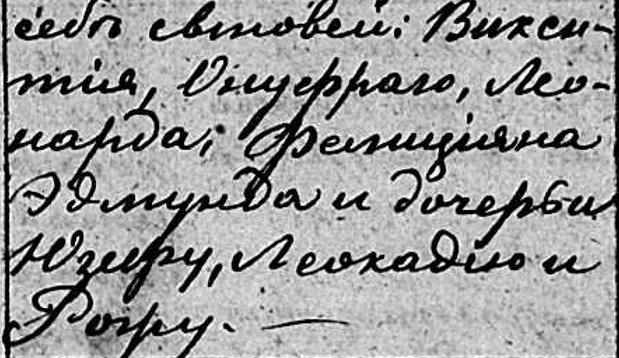 себѣ сыновей: Викен-
тія, Онуфраго, Лео-
нарда, Фелиціяна
Эдмунда и дочерьи
Юзефу, Леокадію и
Розу. —